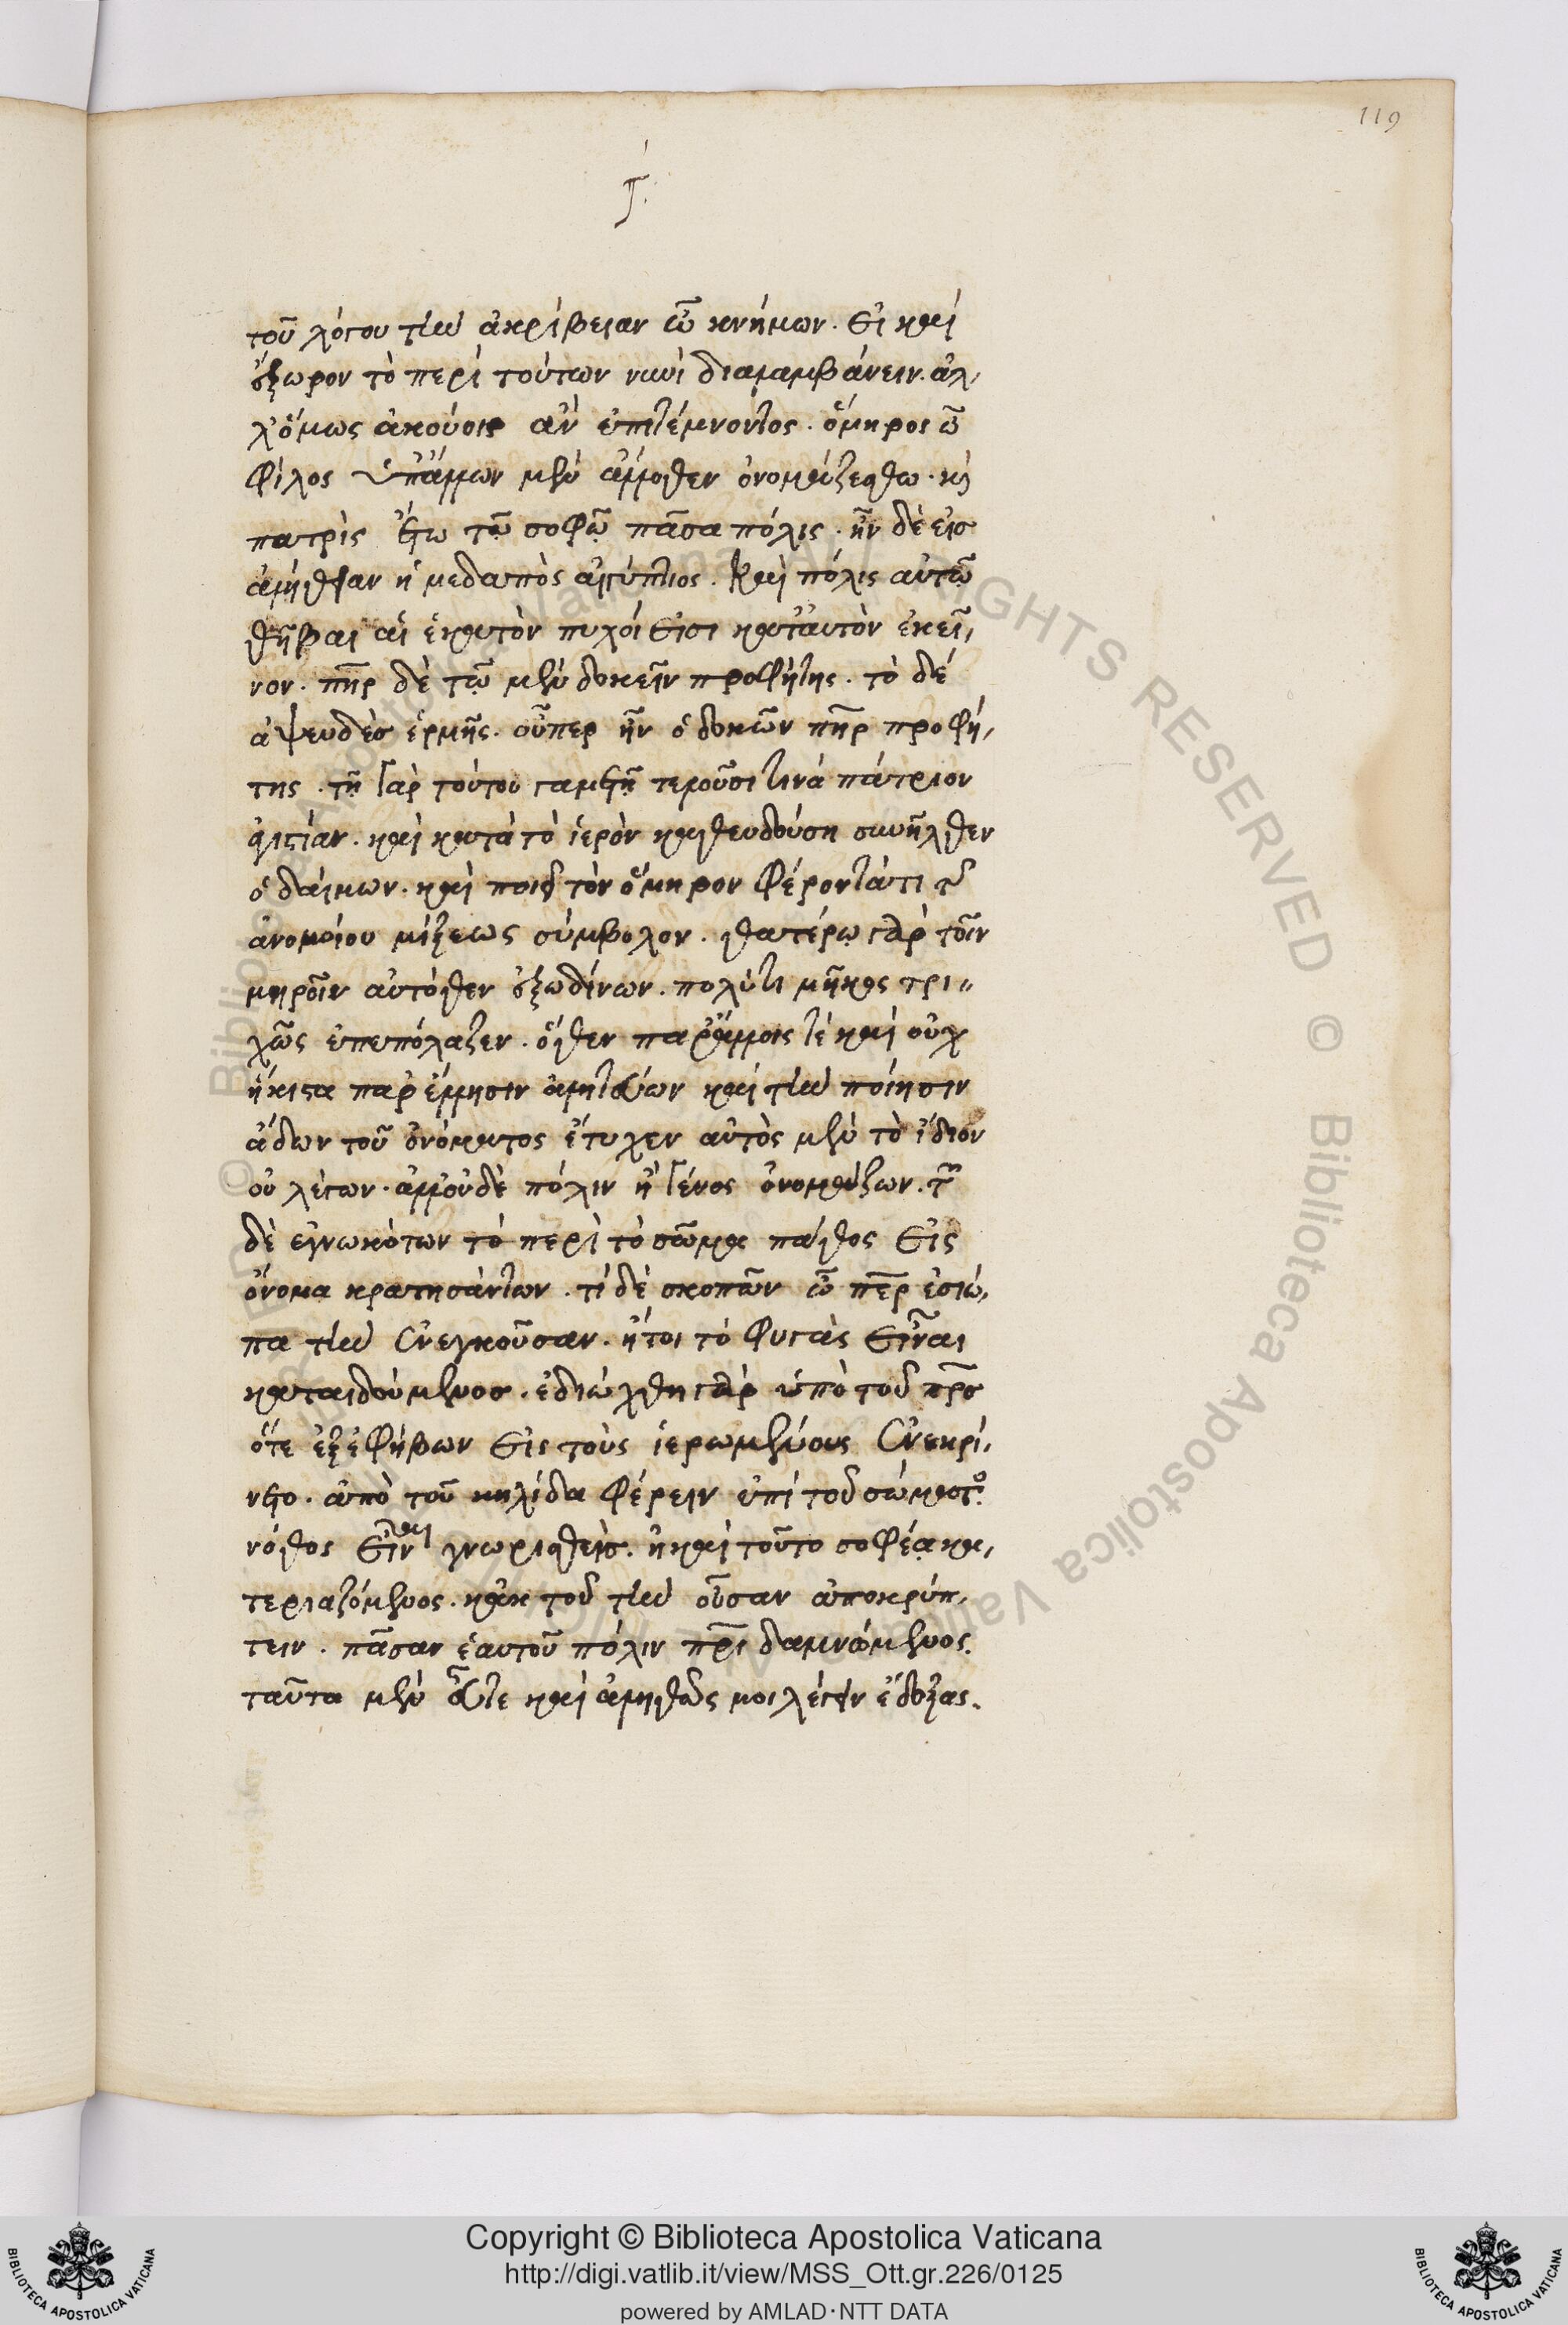 119
τοῦ λόγου τὴν ἀκρίβειαν ὦ κνήμων. εἰ καὶ
ἔξωρον τὸ περὶ τούτων νυνὶ διαλαμβάνειν. ἀλ,
λ' ὅμως ἀκούοις ἂν ἐπιτέμνοντος. ὅμηρος ὦ
φίλος ὑπ' ἄλλων μὲν ἄλλοθεν ὀνομαζέσθω. κὶ
πατρὶς ἔστω τῷ σοφῷ πᾶσα πόλις. ἦν δὲ εἰσ
ἀλήθειαν ἡμεδαπὸς αἰγύπτιος. καὶ πόλις αὐτῶ
θῆβαι αἱ ἑκατὸν πυλοί εἰσι κατ' αὐτὸν ἐκεῖ,
νον. πηρ δὲ τῶ μὲν δοκεῖν προφήτης. τὸ δὲ
ἀψευδὲσ ἑρμῆς. οὗπερ ἦν ὁ δοκῶν πηρ προφή,
της. τῆ γὰρ τούτου γαμετῆ τελούσῃ τινὰ πάτριον
ἁγιστίαν. καὶ κατὰ τὸ ἱερὸν καθευδούση συνῆλθεν
ὁ δαίμων. καὶ ποιεῖ τὸν ὅμηρον φέροντά τι τῆς
ἀνομοίου μίξεως σύμβολον. θατέρῳ γὰρ τοῖν
μηροῖν αὐτόθεν ἐξ ὠδίνων. πολύ τι μῆκος τρι
χῶς ἐπεπόλαζεν. ὅθεν παρ' ἄλλοις τὲ καὶ οὐχ
ἥκιστα παρ' ἕλλησιν ἀλητεύων καὶ τὴν ποίησιν
ἄδων τοῦ ὀνόματος ἔτυχεν αὐτὸς μὲν τὸ ἴδιον
οὐ λέγων. ἀλλ' οὐδὲ πόλιν ἢ γένος ὀνομάζων. τῶν
δὲ ἐγνωκότων τὸ περὶ τὸ σῶμα πάθος εἰς
ὄνομα κρατησάντων. τί δὲ σκοπῶν ὦ περ ἐσιώ,
πα τὴν ἐνεγκοῦσαν. ἤτοι τὸ φυγὰς εἶναι
καταιδούμενοσ. ἐδιώχθη γὰρ ὑπὸ τοῦ πρσ
ὅτε ἐξ ἐφήβων εἰς τοὺς ἱερωμένους ἐνεκρί,
νετο. ἀπὸ τοῦ κηλίδα φέρειν ἐπὶ τοῦ σώματος
νόθος εἶναι γνωρισθείσ. ἢ καὶ τοῦτο σοφίᾳ κα,
τεργαζόμενος. κἀκ τοῦ τὴν οὖσαν ἀποκρύπ,
τειν. πᾶσαν ἑαυτοῦ πόλιν πρι δαμνώμενος.
ταῦτα μὲν εὖ τε καὶ ἀληθῶς μοι λέγειν ἔδοξας.
Copyright © Biblioteca Apostolica Vaticana
http://digi.vatlib.it/view/MSS_Ott.gr.226/0125
powered by AMLAD·NTT DATA